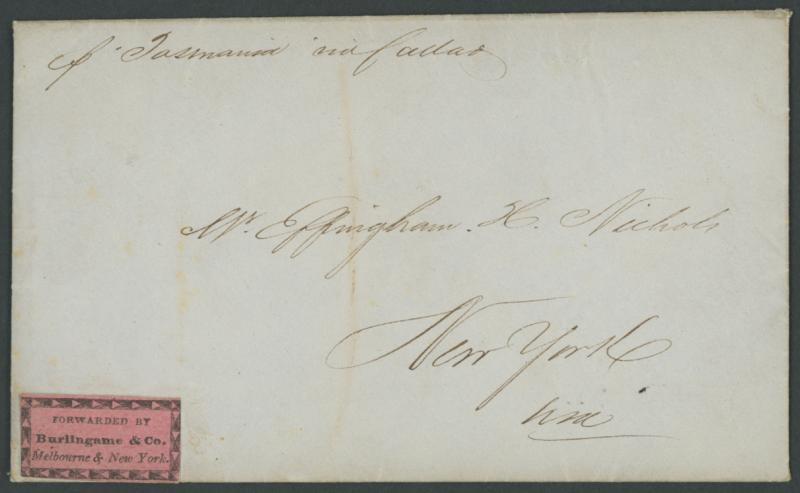 pr Tasmania via Callao
Mr. Effingham. H. Nichols
New York
FORWARDED BY
Burlingame & Co.
Melbourne & New York.